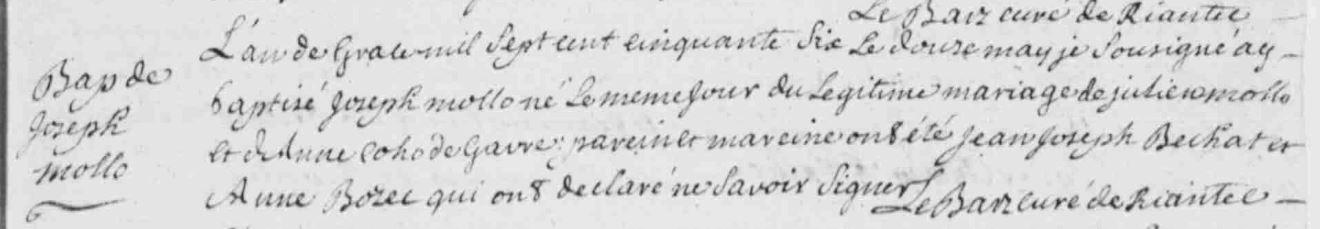 Le Barz curé de Riantec
L'an de Grace mil Sept cent cinquante Six Le douze may je Sousigné ay
Bap de
baptisé Joseph mollo né Le meme Jour du Legitime mariage de julien mollo
Joseph
et d'Anne Coho de Gavre; parein et mareine ont été Jean Joseph Bechat et
mollo
Anne Bozec qui ont declaré ne Savoir Signer
Le Barz curé de Riantec